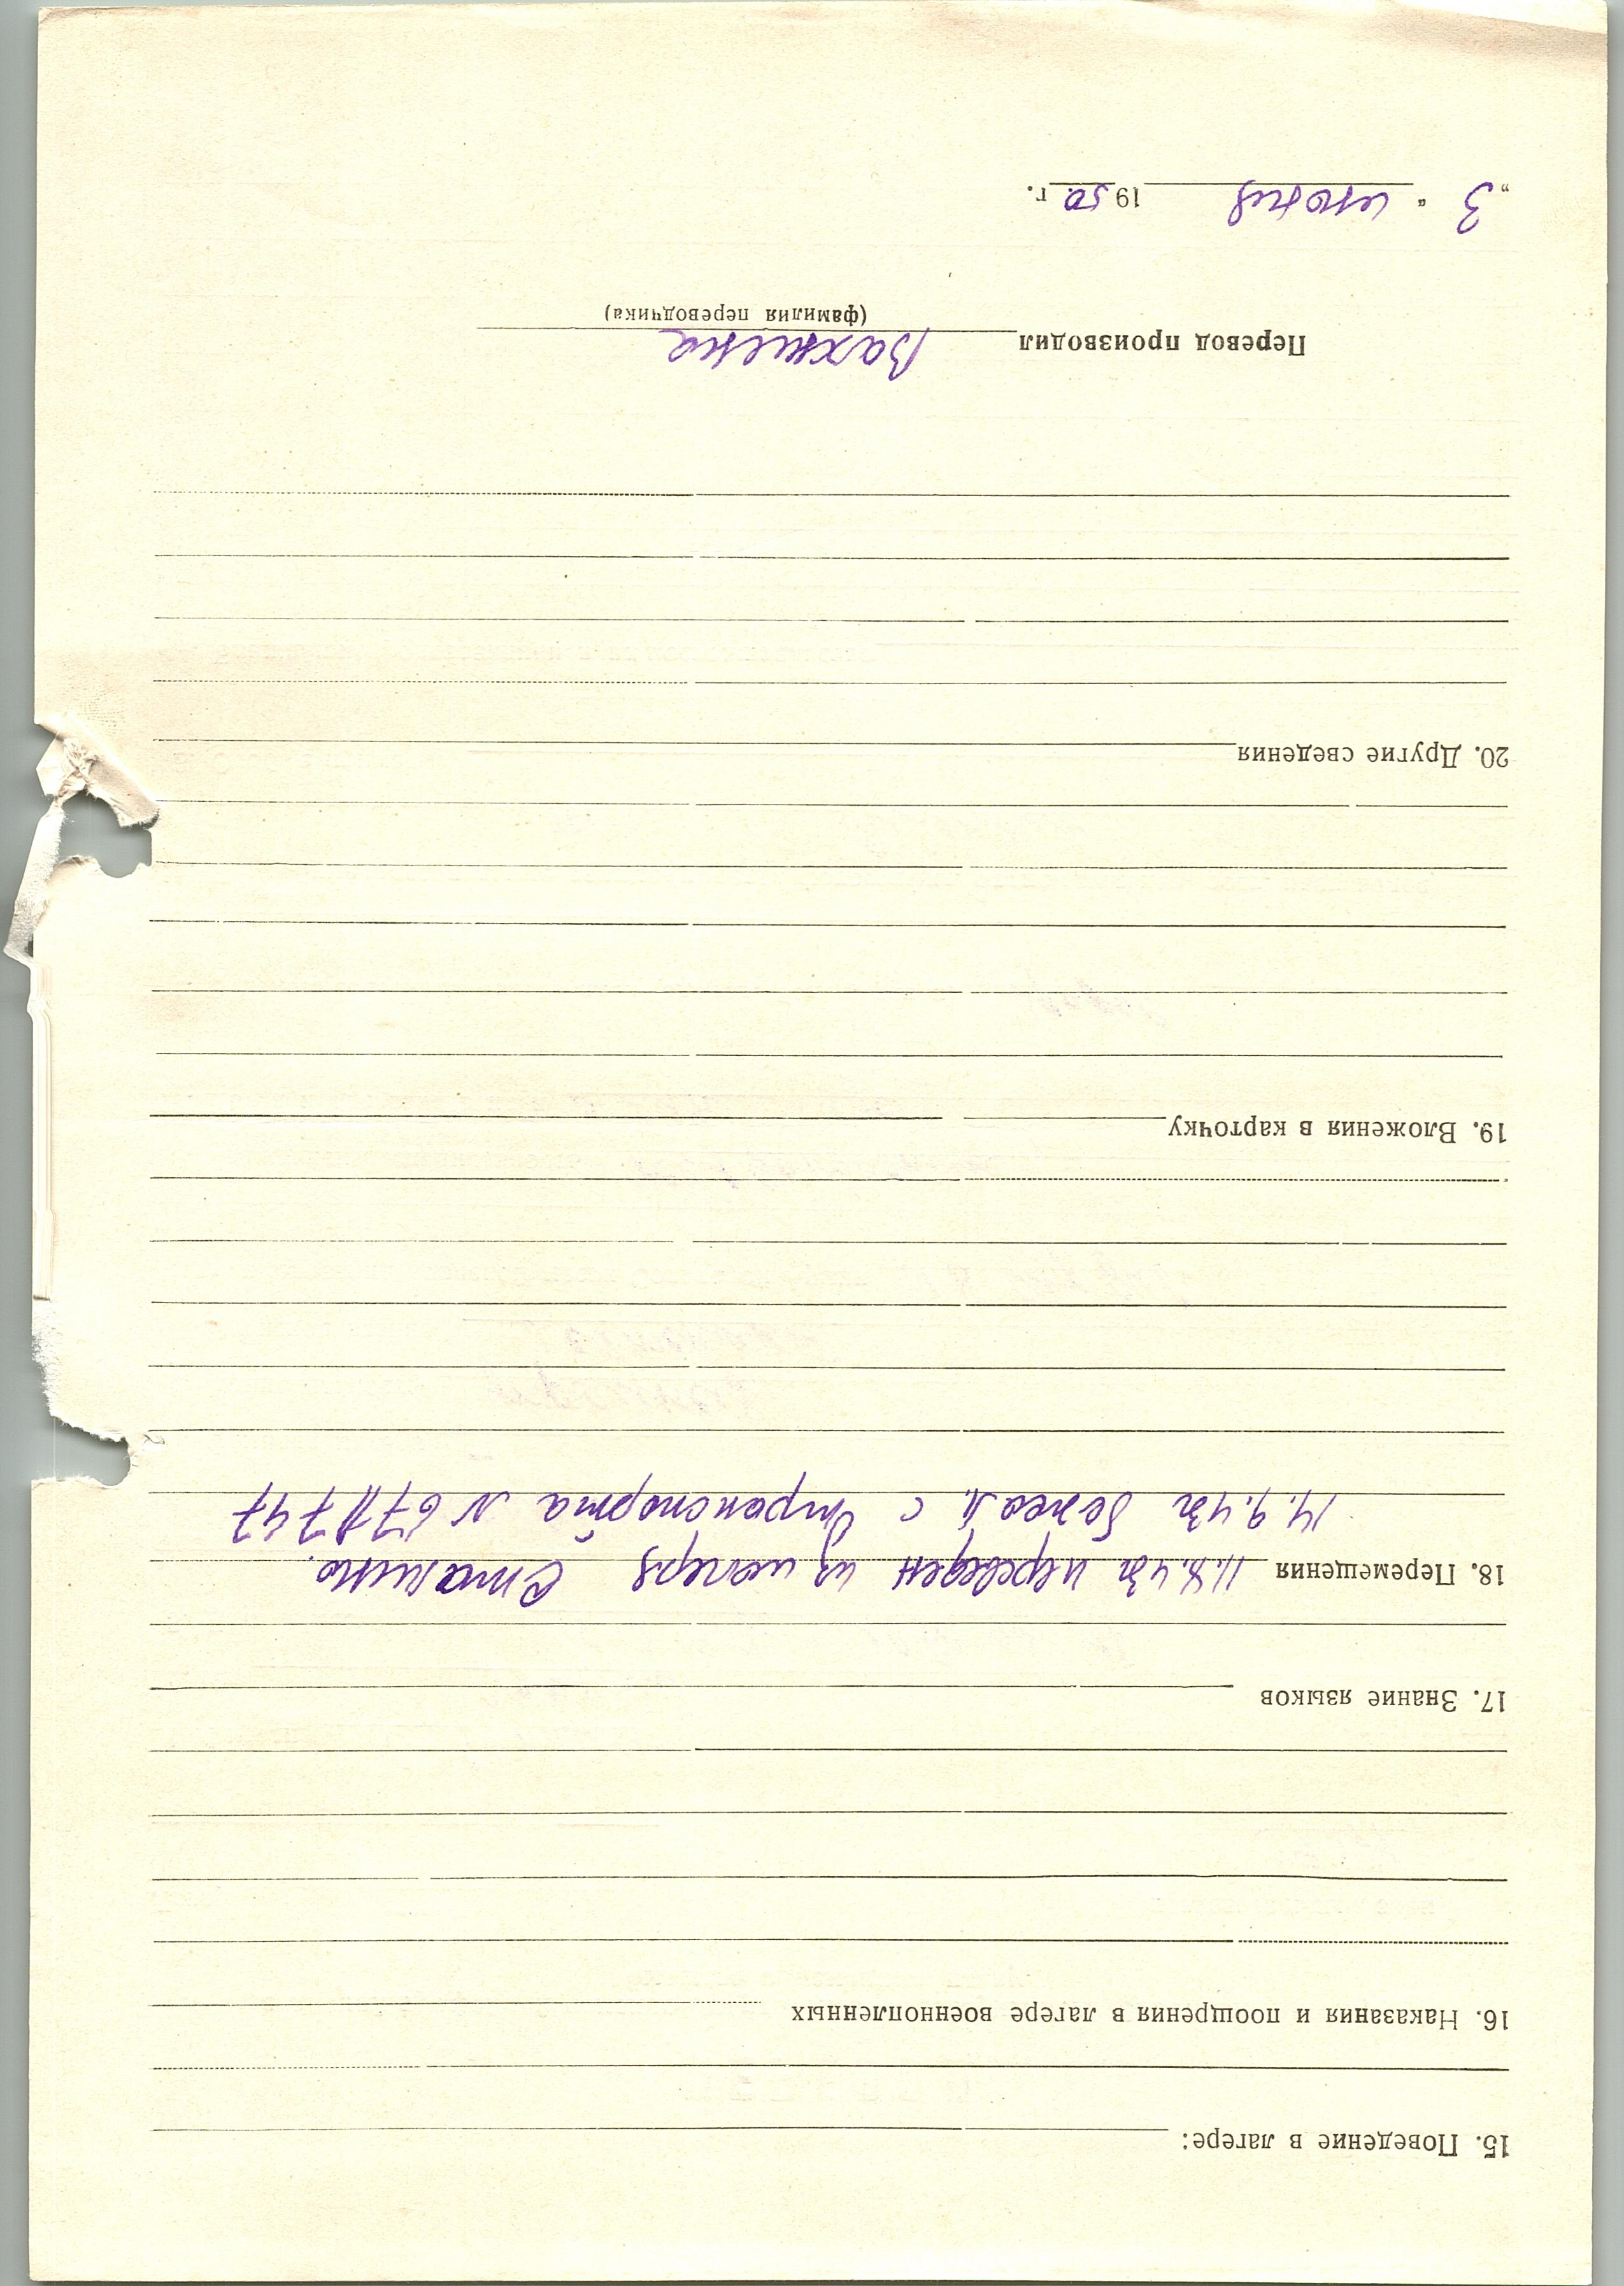 15. Поведение в лагере:
16. Наказания и поощрения в лагере военнопленных
17. Знание языков
18. Перемещения 11.8.43г переведен из лагеря Сталино.
14.9.43г бежал с транспорта N 67
19. Вложения в карточку
20. Другие сведения
Перевод производил
(фамилия переводчика)
„3“ июня 1950 г.